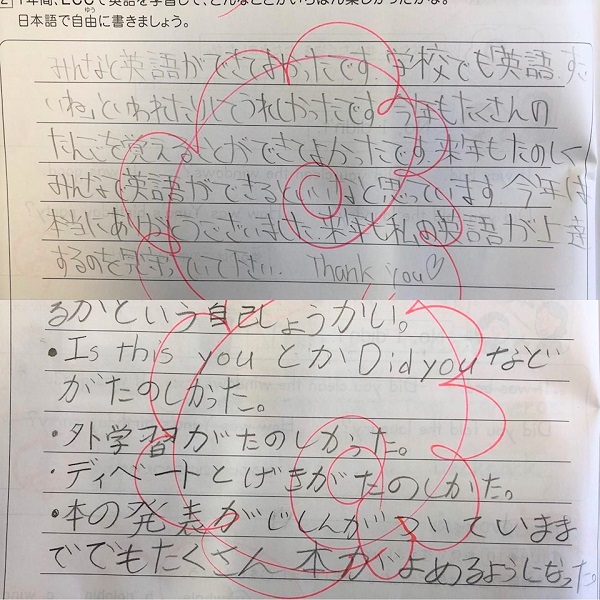 2 1年間、ECCで英語を学習して、どんなことがいちばん楽しかったかな。
日本語で自由に書きましょう。
ゆう
みんなと英語ができてよかったです。学校でも「英語、すご
いね」といわれたりしてうれしかったです。今年もたくさんの
たんごを覚えることができてよかったです。来年もたのしく
みんなで英語ができるといいなと思っています。今年は
本当にありがとうございました。来年も私の英語が上達
するのを見守っていて下さい。 Thank you♡
るかという自己しょうかい。
・Is this you とか Did you など
がたのしかった。
・外学習がたのしかった。
・ディベートとげきがたのしかた。
・本の発表がじしんがついていまま
ででもたくさん 本がよめるようになった。